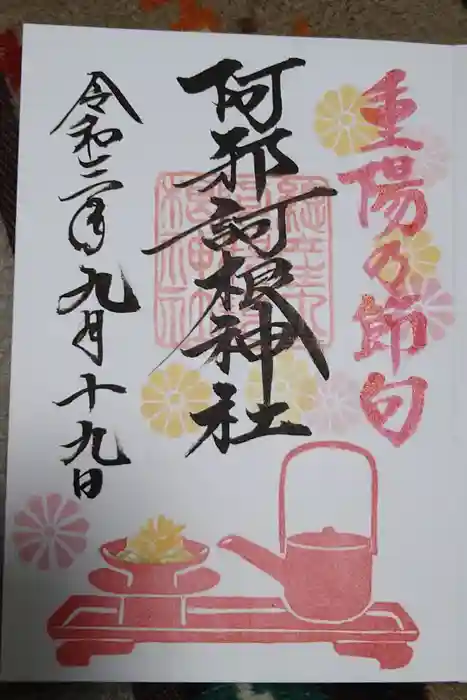 重陽乃節句
阿邪訶根神社
令和三年九月十九日